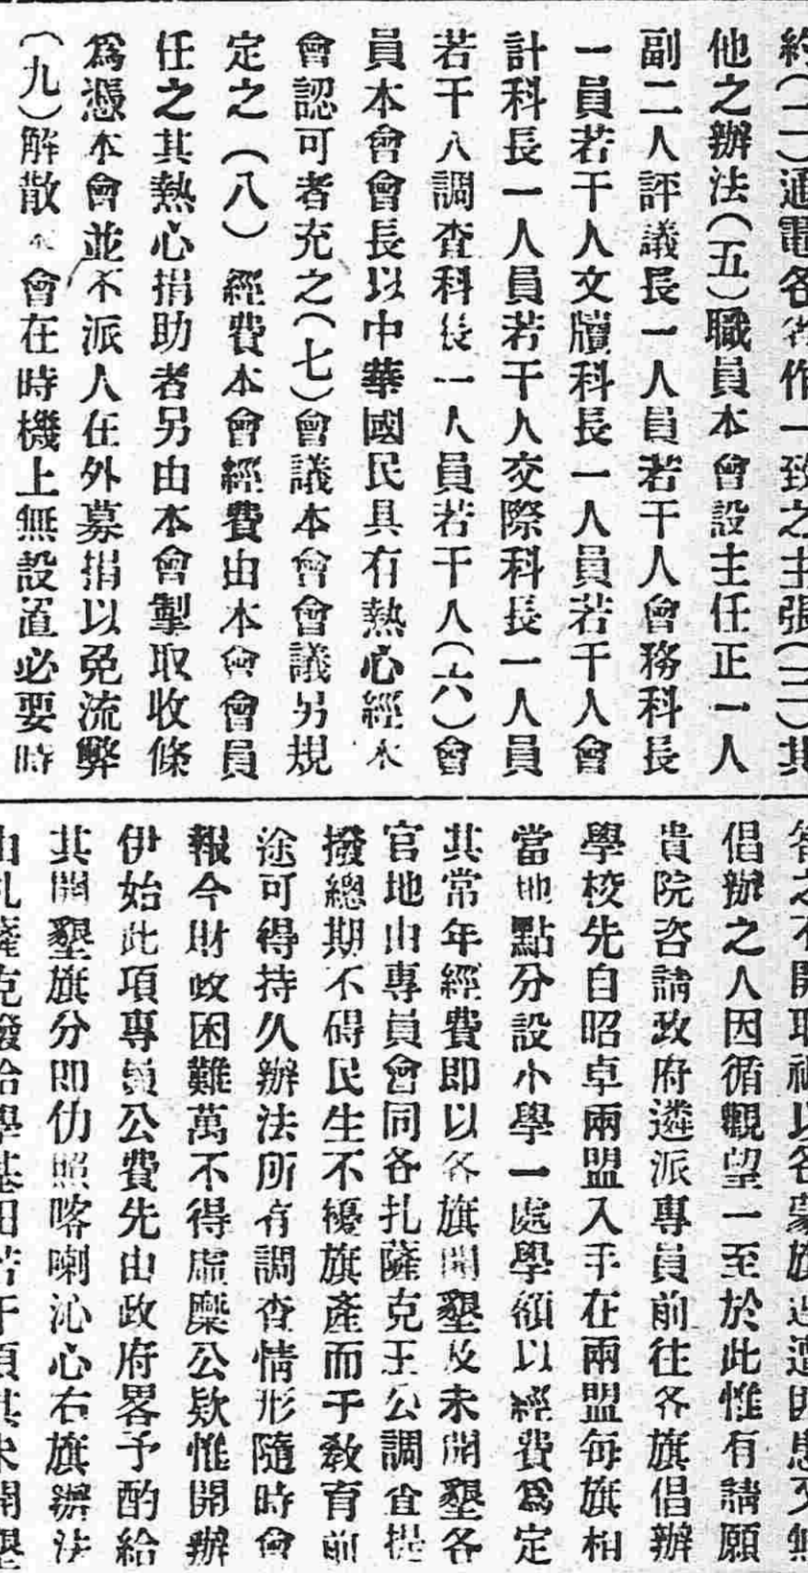 約(二)通電各省作一致之主張(三)其
他之辦法(五)職員本會設主任正一人
副二人評議長一人員若干人會務科長
一員若干人文牘科長一人員若干人會
計科長一人員若干人交際科長一人員
若干人調查科長一人員若干人(六)會
員本會會長以中華國民具有熱心經本
會認可者充之(七)會議本會會議另規
定之(八)經費本會經費由本會會員
任之其熱心捐助者另由本會掣取收條
爲憑本會並不派人在外募捐以免流弊
(九)解散本會在時機上無設置必要時
倡辦之人因循觀望一至於此惟有請願
貴院咨請政府遴派專員前往各旗倡辦
學校先自昭卓兩盟入手在兩盟每旗相
當地點分設小學一處學額以經費爲定
其常年經費即以各旗開墾及未開墾各
官地由專員會同各扎薩克王公調查提
撥總期不碍民生不擾旗產而于敎育前
途可得持久辦法所有調查情形隨時會
報今財政困難萬不得虛糜公欵惟開辦
伊始此項專員公費先由政府畧予酌給
其開墾旗分即仂照喀喇沁心右旗辦法